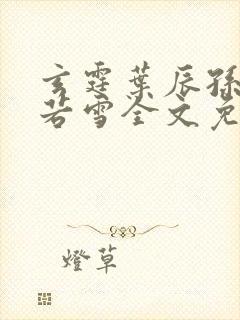 玄霆葉辰孫
若雪全文免
燈草